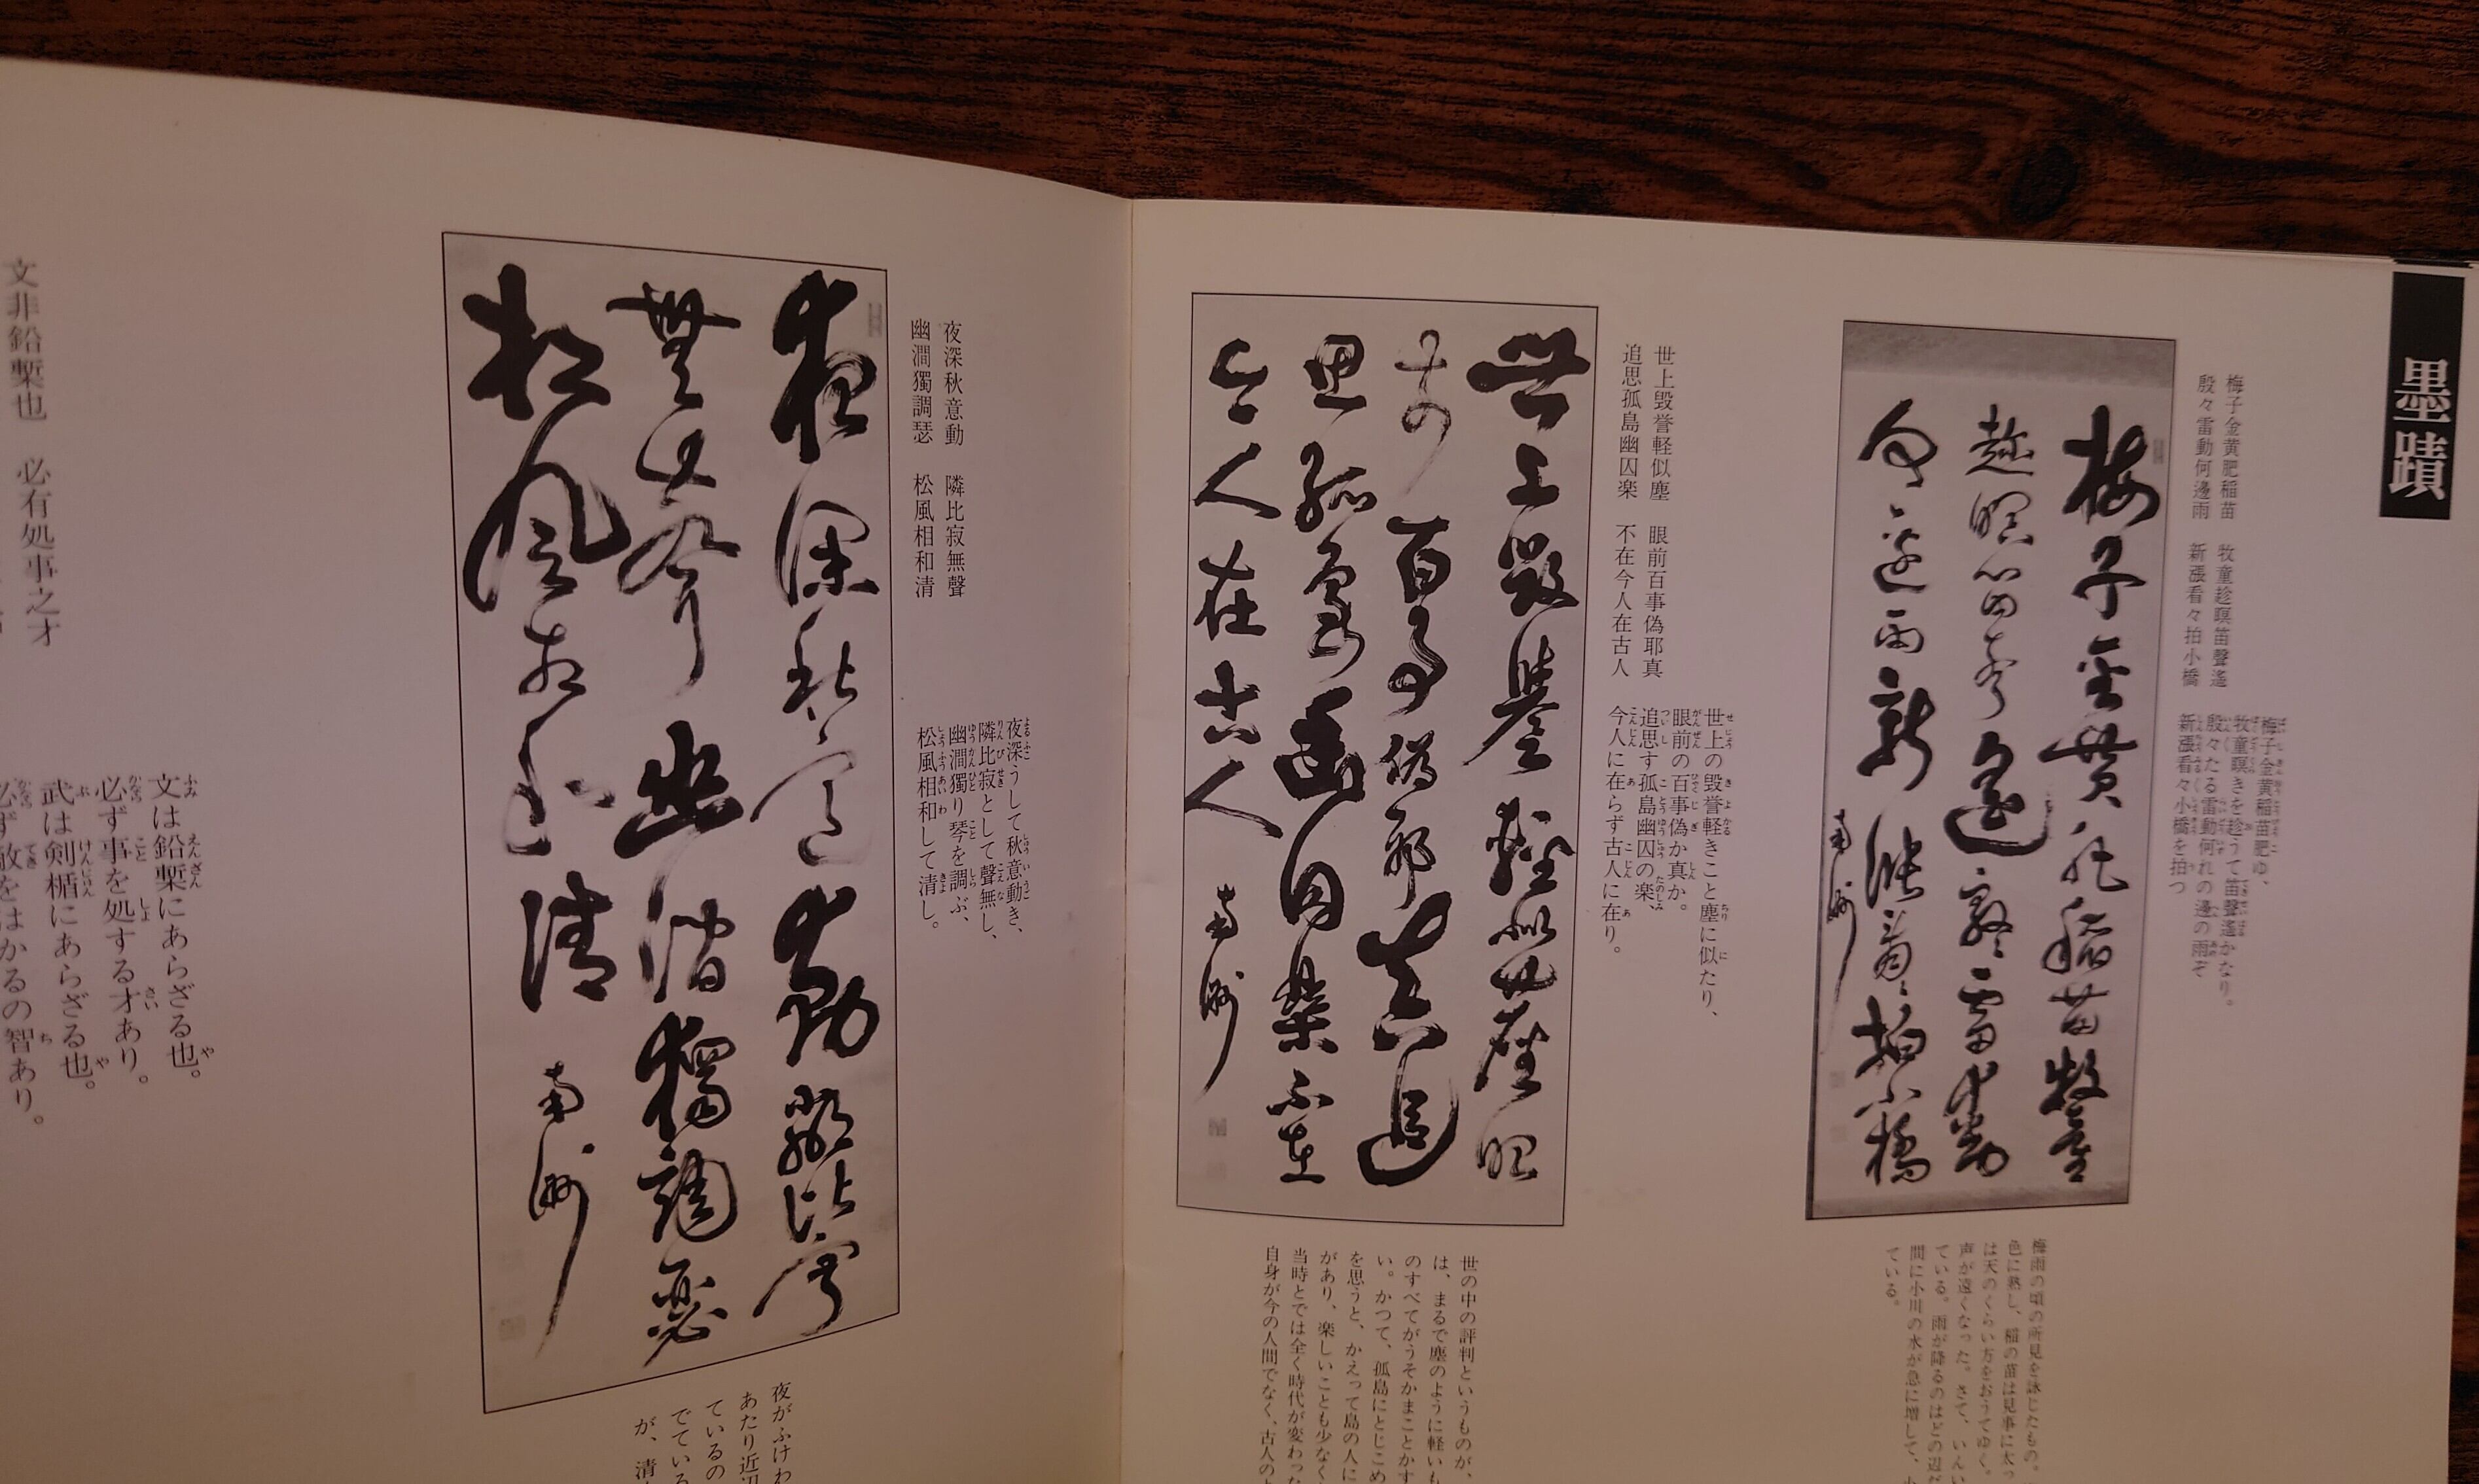 墨蹟
梅子金黄肥稲苗　牧童趁暝笛聲遙
殷々雷動何邊雨　新漲看々拍小橋
梅子金黄稲苗肥ゆ、
牧童暝きを趁うて笛聲遙かなり。
殷々たる雷動何れの邊の雨ぞ
新漲看々小橋を拍つ
梅子金黄肥稲苗牧童
趁暝笛聲遙殷々雷動
何邊雨新漲看々拍小橋
南洲
梅雨の頃の所見を詠じたもの。
色に熟し、稲の苗は見事に太っ
は天のくらい方をおうてゆく。
声が遠くなった。さて、いんい
ている。雨が降るのはどの辺だ
間に小川の水が急に増して、小
ている。
世上毀誉軽似塵　眼前百事偽耶真
追思孤島幽囚楽　不在今人在古人
世上の毀誉軽きこと塵に似たり、
眼前の百事偽か真か。
追思す孤島幽囚の楽、
今人に在らず古人に在り。
世上毀譽輕似塵眼
前百事偽耶真追
思孤島幽囚楽不在
今人在古人
南洲
世の中の評判というものが、
は、まるで塵のように軽いも
のすべてがうそかまことかす
い。かつて、孤島にとじこめ
を思うと、かえって島の人に
があり、楽しいことも少なく
当時とでは全く時代が変わった
自身が今の人間でなく、古人の
夜深秋意動　隣比寂無聲
幽澗獨調瑟　松風相和清
夜深うして秋意動き、
隣比寂として聲無し、
幽澗獨り琴を調ぶ、
松風相和して清し。
夜深秋意動隣比寂
無聲幽澗獨調瑟
松風相和清
南洲
夜がふけわ
あたり近辺
ているの
でている
が、清
文非鉛槧也　必有処事之才
文は鉛槧にあらざる也。
必ず事を処する才あり。
武は剣楯にあらざる也。
必ず敵をはかるの智あり。